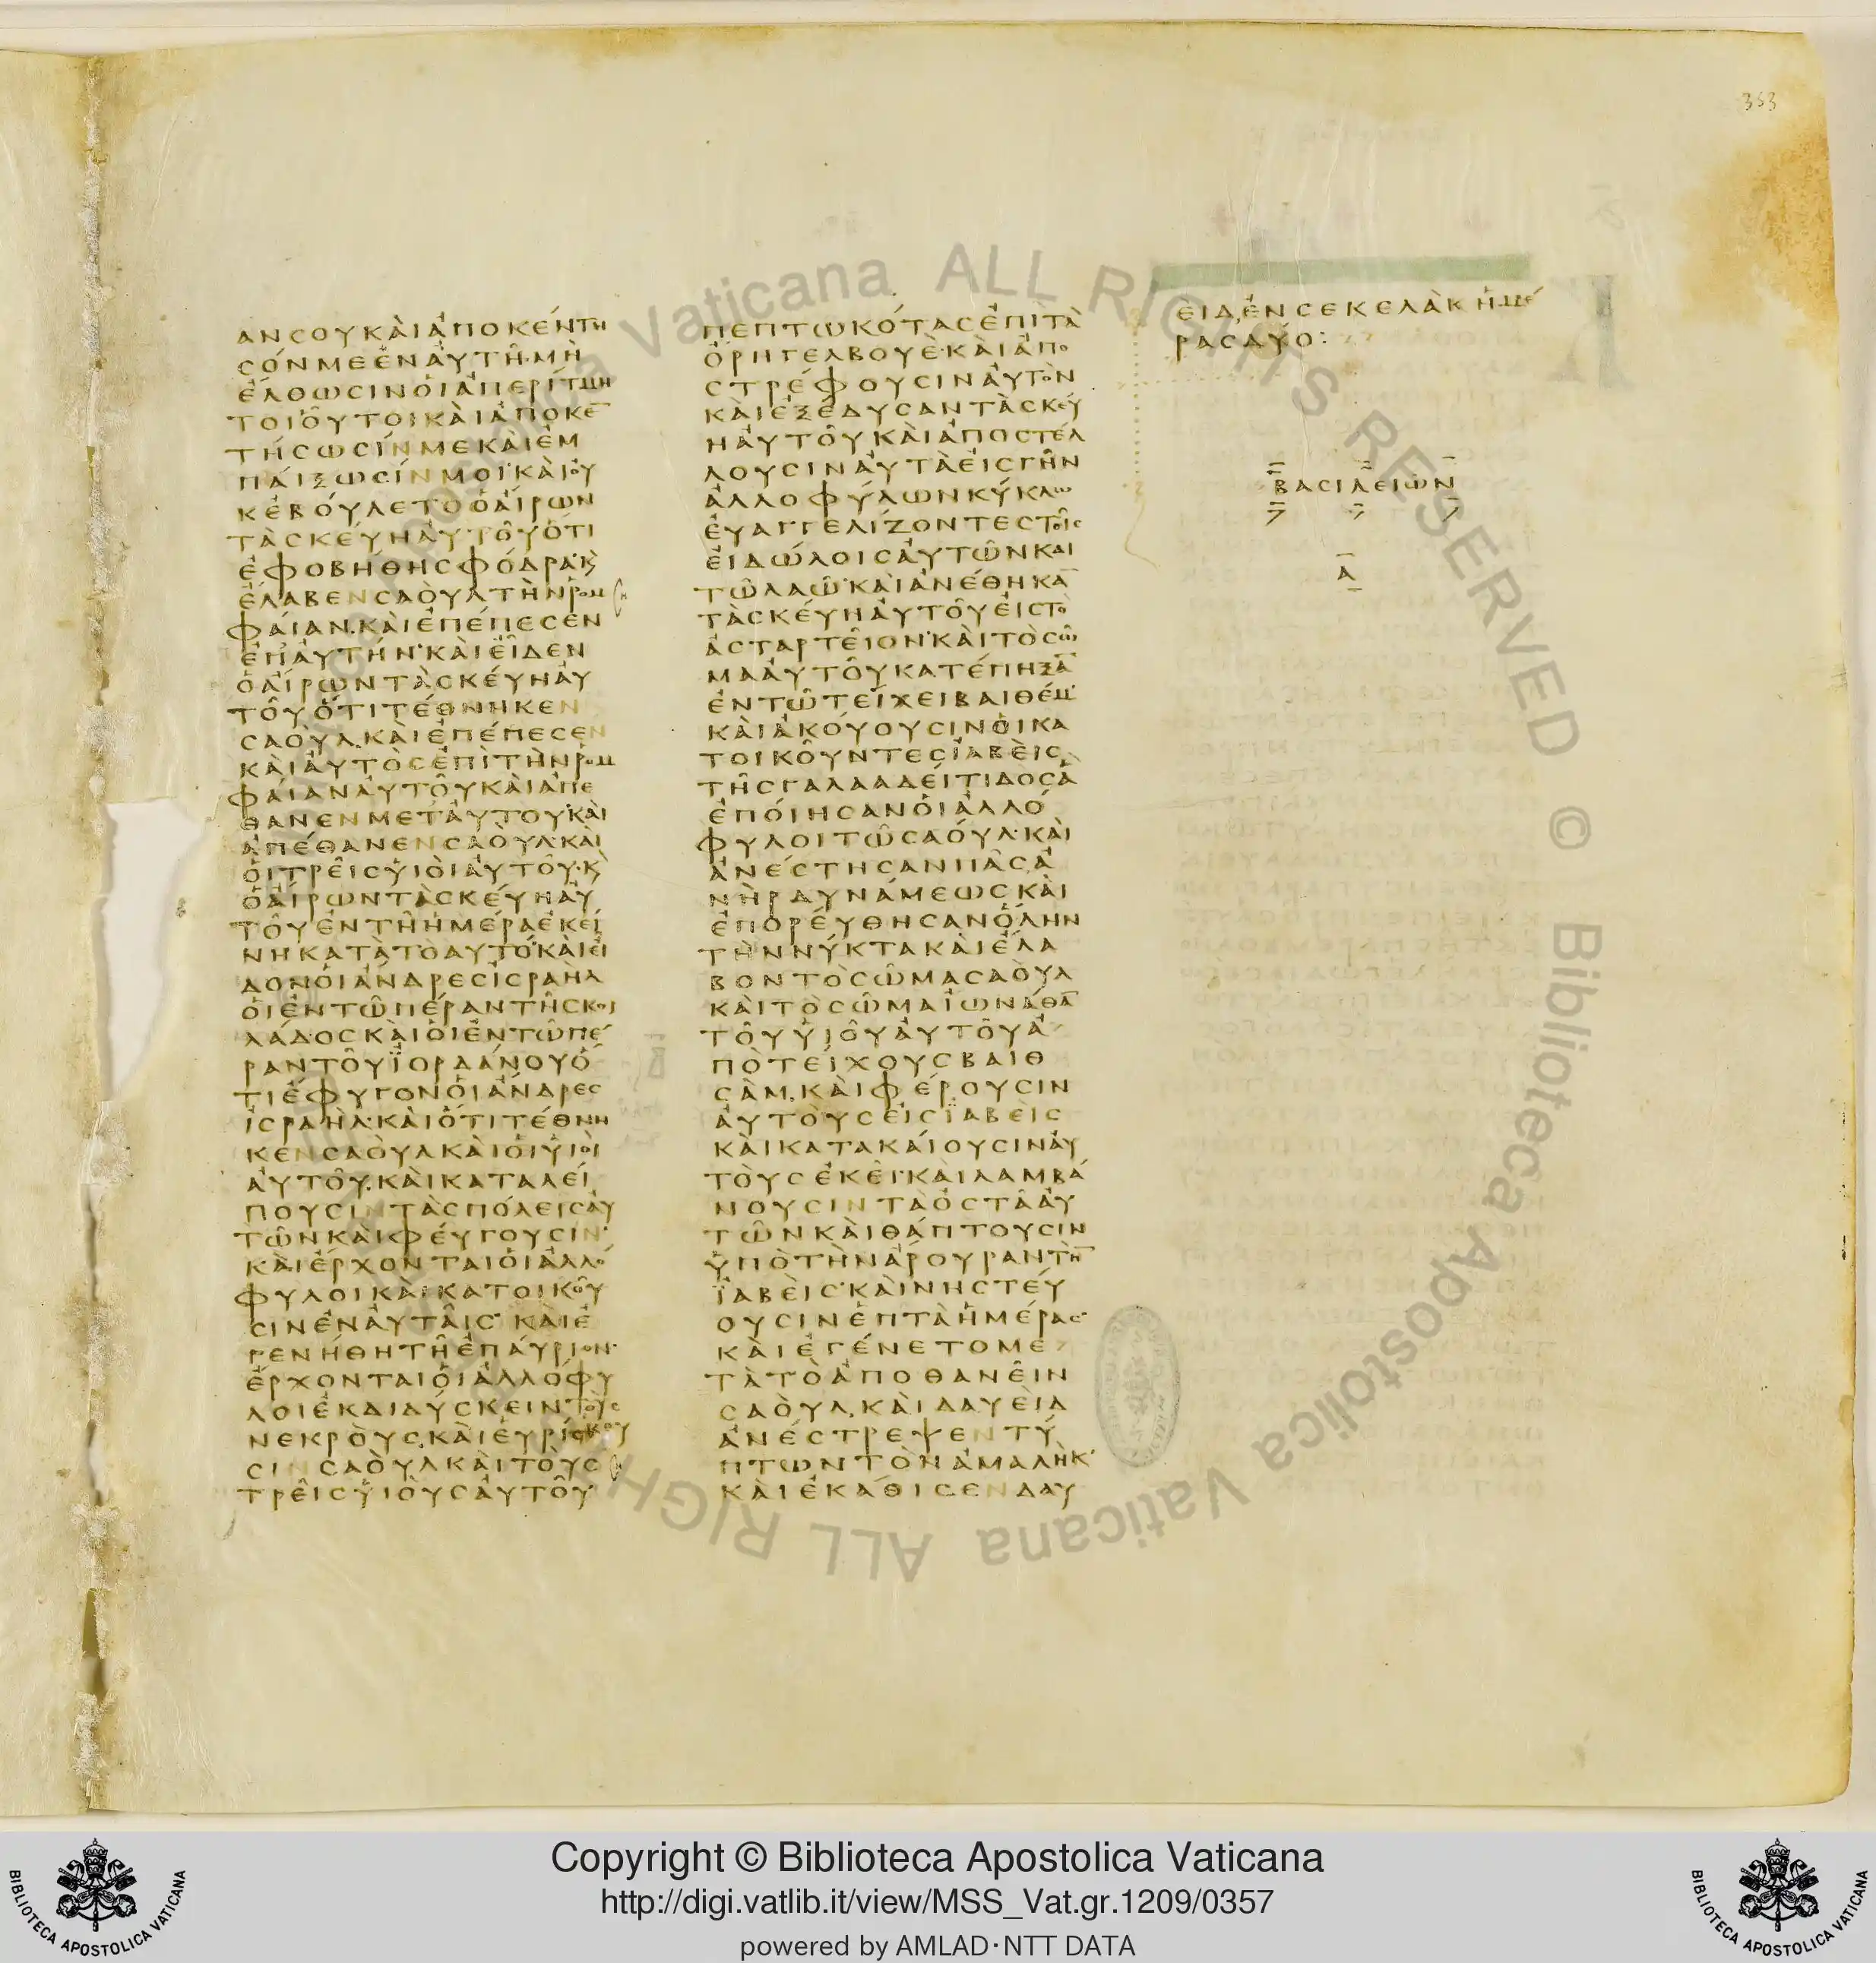 353
ΑΝϹΟΥΚΑΙΑΠΟΚΕΝΤΗ
ϹΟΝΜΕΕΝΑΥΤΗ·ΜΗ
ΕΛΘΩϹΙΝΟΙΑΠΕΡΙΤΜΗ
ΤΟΙΟΥΤΟΙΚΑΙΑΠΟΚΕ̅
ΤΗϹΩϹΙΝΜΕΚΑΙΕΜ
ΠΑΙΞΩϹΙΝΜΟΙ·ΚΑΙΟΥ
ΚΕΒΟΥΛΕΤΟΟΑΙΡΩΝ
ΤΑϹΚΕΥΗΑΥΤΟΥΟΤΙ
ΕΦΟΒΗΘΗϹΦΟΔΡΑ·Κ̀
ΕΛΑΒΕΝϹΑΟΥΛΤΗΝΡΟΜ
ΦΑΙΑΝ·ΚΑΙΕΠΕΠΕϹΕΝ
ΕΠΑΥΤΗΝ·ΚΑΙΕΙΔΕΝ
ΟΑΙΡΩΝΤΑϹΚΕΥΗΑΥ
ΤΟΥΟΤΙΤΕΘΝΗΚΕΝ
ϹΑΟΥΛ·ΚΑΙΕΠΕΠΕϹΕΝ
ΚΑΙΑΥΤΟϹΕΠΙΤΗΝΡΟΜ
ΦΑΙΑΝΑΥΤΟΥΚΑΙΑΠΕ
ΘΑΝΕΝΜΕΤΑΥΤΟΥ·ΚΑΙ
ΑΠΕΘΑΝΕΝϹΑΟΥΛ·ΚΑΙ
ΟΙΤΡΕΙϹΥΙΟΙΑΥΤΟΥ·Κ̀
ΟΑΙΡΩΝΤΑϹΚΕΥΗΑΥ
ΤΟΥΕΝΤΗΗΜΕΡΑΕΚΕΙ
ΝΗΚΑΤΑΤΟΑΥΤΟ·ΚΑΙΕΙ
ΔΟΝΟΙΑΝΔΡΕϹΙϹΡΑΗΛ
ΟΙΕΝΤΩΠΕΡΑΝΤΗϹΚΟΙ
ΛΑΔΟϹΚΑΙΟΙΕΝΤΩΠΕ
ΡΑΝΤΟΥΪΟΡΔΑΝΟΥΟ
ΤΙΕΦΥΓΟΝΟΙΑΝΔΡΕϹ
ΙϹΡΑΗΛ·ΚΑΙΟΤΙΤΕΘΝΗ
ΚΕΝϹΑΟΥΛΚΑΙΟΙΥΙΟΙ
ΑΥΤΟΥ·ΚΑΙΚΑΤΑΛΕΙ
ΠΟΥϹΙΝΤΑϹΠΟΛΕΙϹΑΥ
ΤΩΝΚΑΙΦΕΥΓΟΥϹΙΝ·
ΚΑΙΕΡΧΟΝΤΑΙΟΙΑΛΛΟ
ΦΥΛΟΙΚΑΙΚΑΤΟΙΚΟΥ
ϹΙΝΕΝΑΥΤΑΙϹ·ΚΑΙΕ
ΓΕΝΗΘΗΤΗΕΠΑΥΡΙΟΝ·
ΕΡΧΟΝΤΑΙΟΙΑΛΛΟΦΥ
ΛΟΙΕΚΔΙΔΥϹΚΕΙΝΤΟΥϹ
ΝΕΚΡΟΥϹ·ΚΑΙΕΥΡΙϹΚΟΥ
ϹΙΝϹΑΟΥΛΚΑΙΤΟΥϹ
ΤΡΕΙϹΥΙΟΥϹΑΥΤΟΥ
ΠΕΠΤΩΚΟΤΑϹΕΠΙΤΑ
ΟΡΗΓΕΛΒΟΥΕ·ΚΑΙΑΠΟ
ϹΤΡΕΦΟΥϹΙΝΑΥΤΟΝ
ΚΑΙΕΞΕΔΥϹΑΝΤΑϹΚΕΥ
ΗΑΥΤΟΥΚΑΙΑΠΟϹΤΕΛ
ΛΟΥϹΙΝΑΥΤΑΕΙϹΓΗΝ
ΑΛΛΟΦΥΛΩΝΚΥΚΛΩ
ΕΥΑΓΓΕΛΙΖΟΝΤΕϹΤΟΙϹ
ΕΙΔΩΛΟΙϹΑΥΤΩΝΚΑΙ
ΤΩΛΑΩ·ΚΑΙΑΝΕΘΗΚΑ̅
ΤΑϹΚΕΥΗΑΥΤΟΥΕΙϹΤΟ
ΑϹΤΑΡΤΕΙΟΝ·ΚΑΙΤΟϹΩ
ΜΑΑΥΤΟΥΚΑΤΕΠΗΞΑ̅
ΕΝΤΩΤΕΙΧΕΙΒΑΙΘΕΜ·
ΚΑΙΑΚΟΥΟΥϹΙΝΟΙΚΑ
ΤΟΙΚΟΥΝΤΕϹΪΑΒΕΙϹ
ΤΗϹΓΑΛΑΑΔΕΙΤΙΔΟϹΑ
ΕΠΟΙΗϹΑΝΟΙΑΛΛΟ
ΦΥΛΟΙΤΩϹΑΟΥΛ·ΚΑΙ
ΑΝΕϹΤΗϹΑΝΠΑϹΑ
ΝΗΡΔΥΝΑΜΕΩϹ·ΚΑΙ
ΕΠΟΡΕΥΘΗϹΑΝΟΛΗΝ
ΤΗΝΝΥΚΤΑΚΑΙΕΛΑ
ΒΟΝΤΟϹΩΜΑϹΑΟΥΛ
ΚΑΙΤΟϹΩΜΑΪΩΝΑΘΑ̅
ΤΟΥΥΙΟΥΑΥΤΟΥΑ
ΠΟΤΕΙΧΟΥϹΒΑΙΘ
ϹΑΜ·ΚΑΙΦΕΡΟΥϹΙΝ
ΑΥΤΟΥϹΕΙϹΪΑΒΕΙϹ
ΚΑΙΚΑΤΑΚΑΙΟΥϹΙΝΑΥ
ΤΟΥϹΕΚΕΙ·ΚΑΙΛΑΜΒΑ
ΝΟΥϹΙΝΤΑΟϹΤΑΑΥ
ΤΩΝΚΑΙΘΑΠΤΟΥϹΙΝ
ΥΠΟΤΗΝΑΡΟΥΡΑΝΤΗ̅
ΪΑΒΕΙϹ·ΚΑΙΝΗϹΤΕΥ
ΟΥϹΙΝΕΠΤΑΗΜΕΡΑϹ·
ΚΑΙΕΓΕΝΕΤΟΜΕ
ΤΑΤΟΑΠΟΘΑΝΕΙΝ
ϹΑΟΥΛ·ΚΑΙΔΑΥΕΙΔ
ΑΝΕϹΤΡΕΨΕΝΤΥ
ΠΤΩΝΤΟΝΑΜΑΛΗΚ·
ΚΑΙΕΚΑΘΙϹΕΝΔΑΥ
ΕΙΔΕΝϹΕΚΕΛΑΚΗΜΕ
ΡΑϹΔΥΟ:
ΒΑϹΙΛΕΙΩΝ
Α̅
Copyright © Biblioteca Apostolica Vaticana
http://digi.vatlib.it/view/MSS_Vat.gr.1209/0357
powered by AMLAD·NTT DATA
BIBLIOTECA APOSTOLICA VATICANA
BIBLIOTECA APOSTOLICA VATICANA